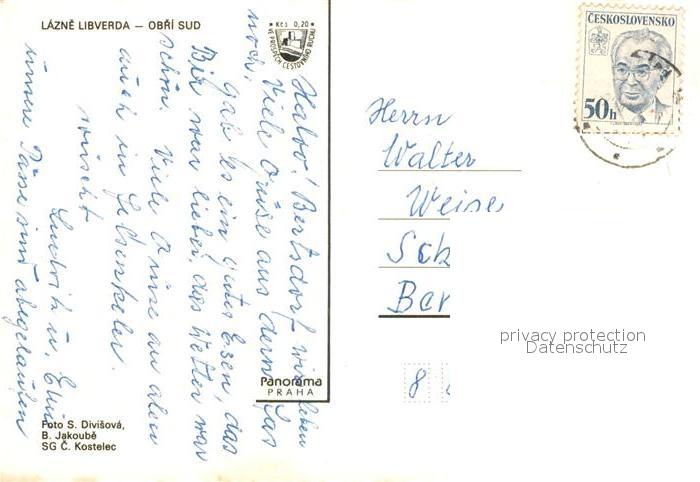 LÁZNĚ LIBVERDA — OBŘÍ SUD
Kčs 0,20
VE PROSPĚCH CESTOVNÍHO RUCHU
Hallo! Bertsdorf wir leben
noch.
Viele Grüße aus dem
gab es ein gutes Essen, das
Bier war lieber, das Wetter war
schön. Viele Grüße an allen
auch in
wünscht
Ludwik u.
immer Pässe sind abgelaufen
Panorama
PRAHA
Foto S. Divišová,
B. Jakoubě
SG Č. Kostelec
ČESKOSLOVENSKO
50h
Herrn
Walter
Weise
Sch
Ber
8
privacy protection
Datenschutz